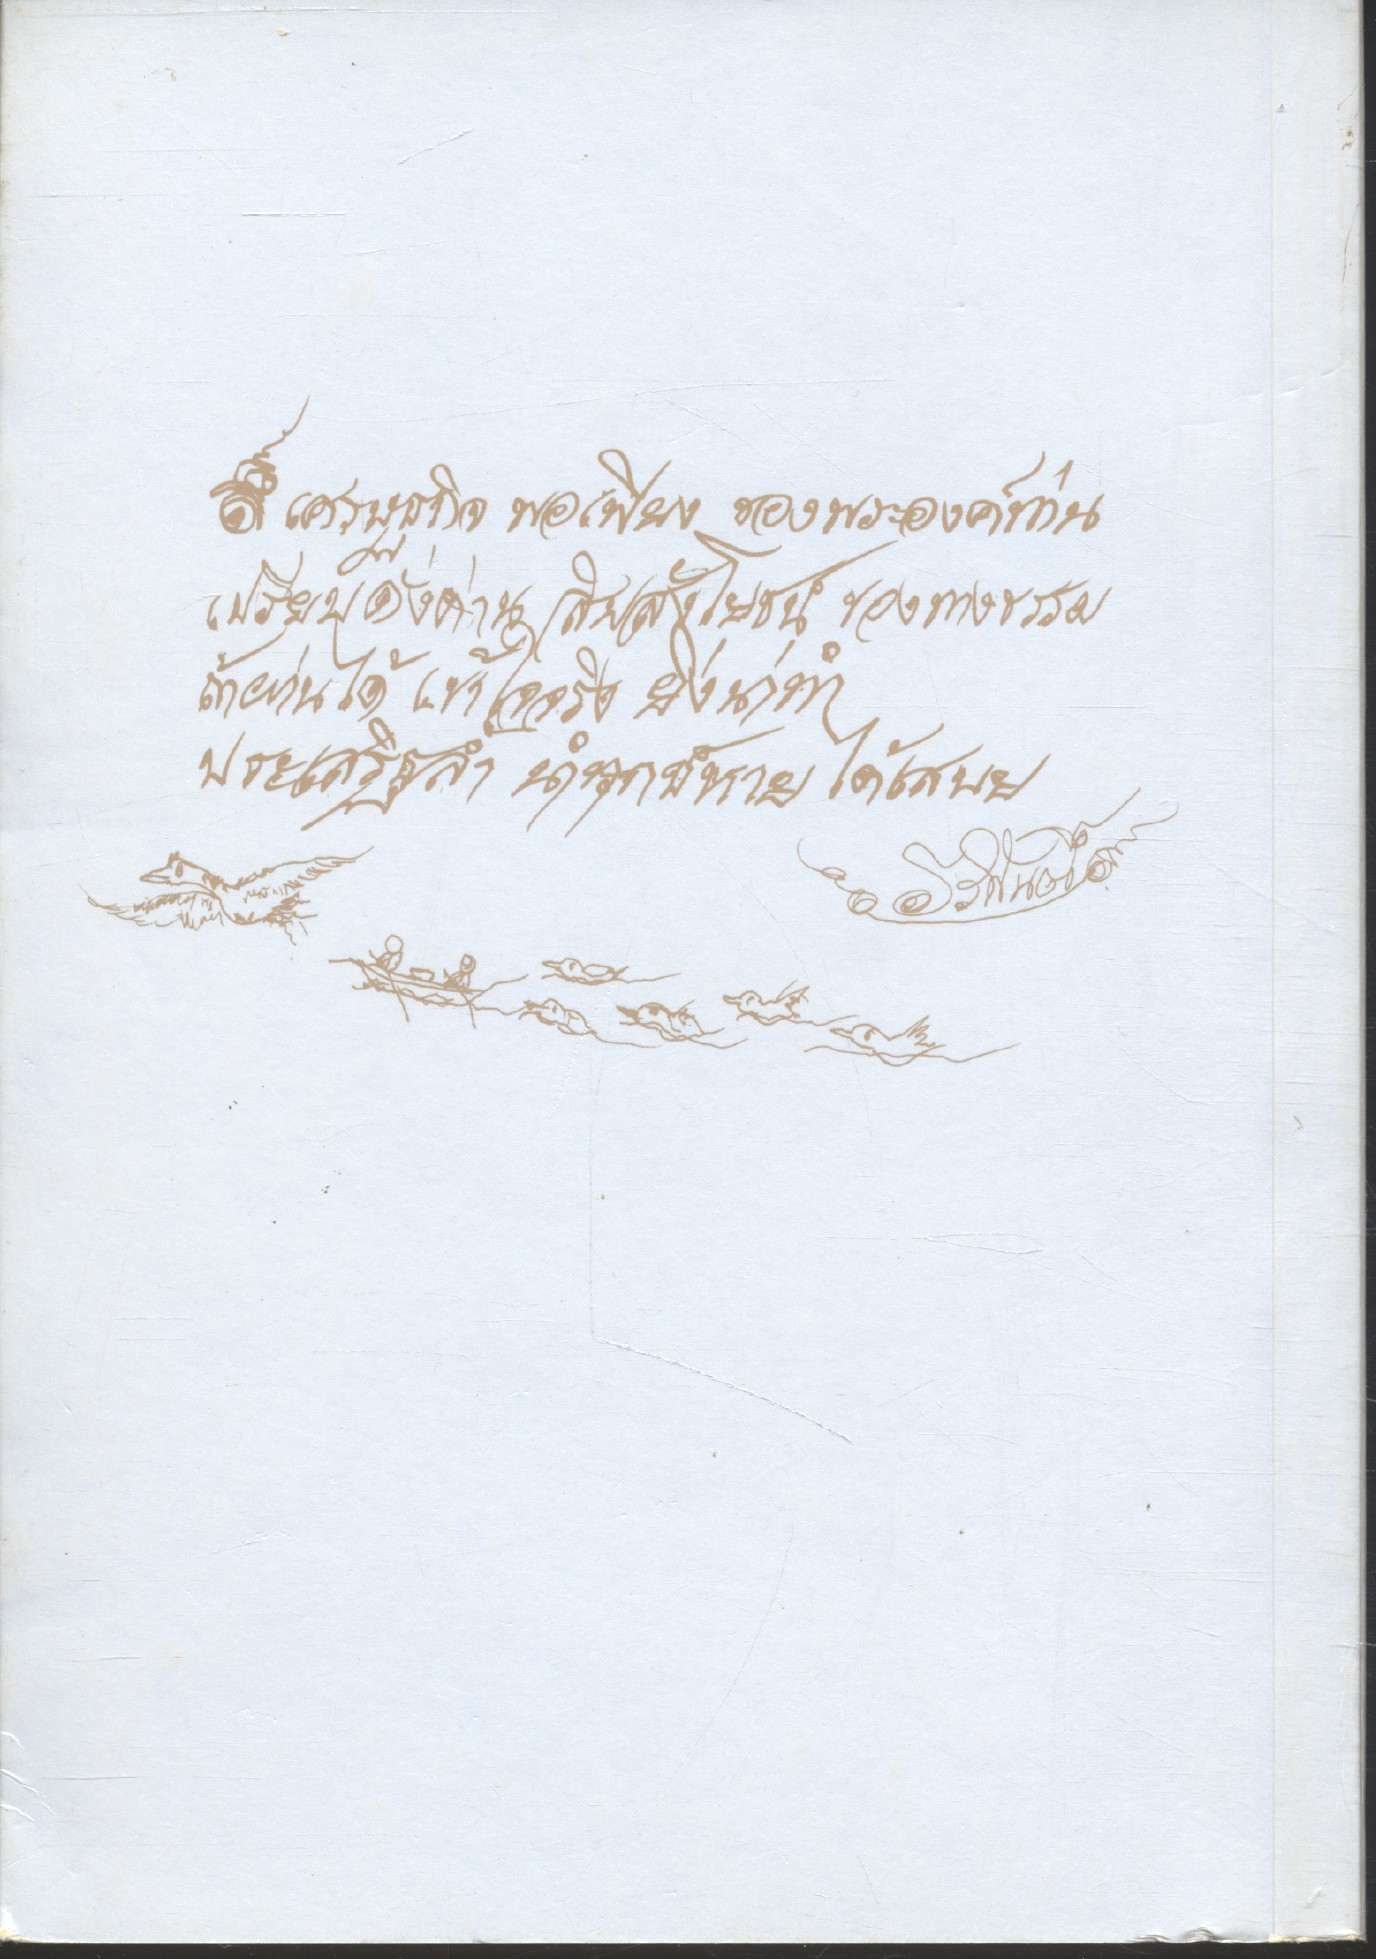 เศรษฐกิจ พอเพียง ของพระองค์ท่าน
เปรียบดั่งด่าน สิบสังโยชน์ ของทางธรรม
ถ้าผ่านได้ เข้าใจจริง ยิ่งน่าทำ
ประเสริฐล้ำ นำทุกข์หาย ได้เสบย